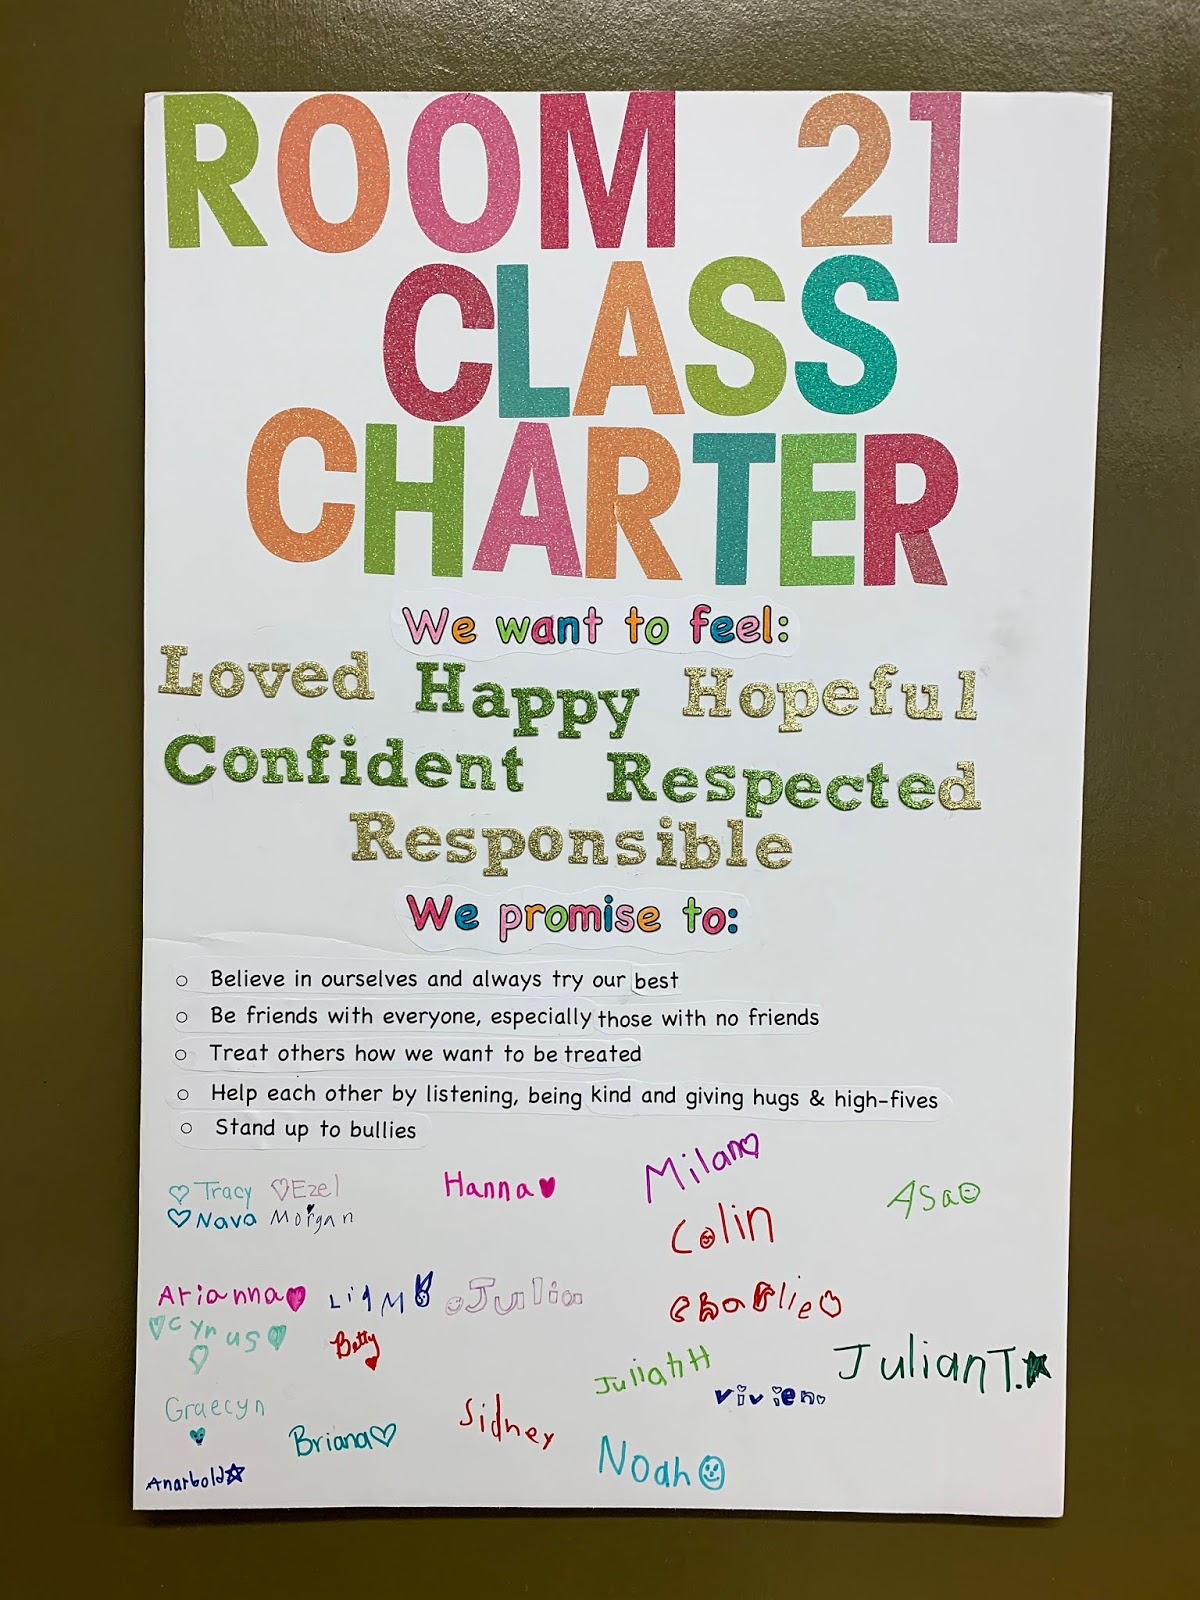 ROOM 21
CLASS
CHARTER
We want to feel:
Loved Happy Hopeful
Confident Respected
Responsible
We promise to:
Believe in ourselves and always try our best
Be friends with everyone, especially those with no friends
Treat others how we want to be treated
Help each other by listening, being kind and giving hugs & high-fives
Stand up to bullies
Tracy Ezel Hanna Milan Asa
Nava Morgan Colin
Arianna Liam Julia Charlie
Cyrus Betty
Julian H Vivien Julian T.
Graecyn Briana Sidney
Noah
Anarbold